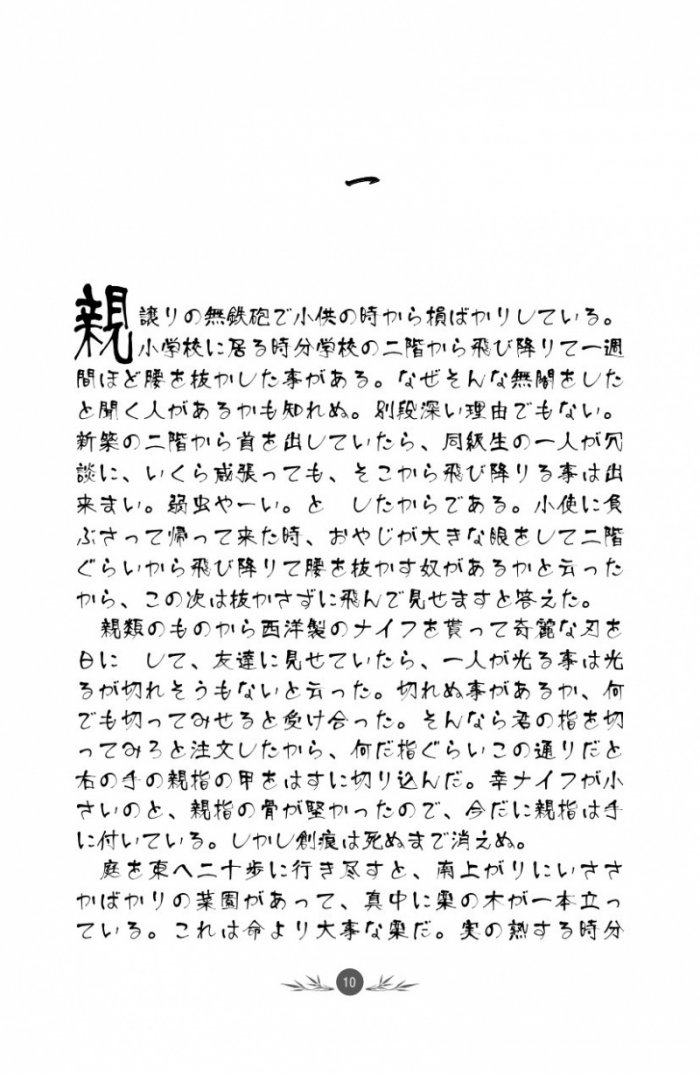 一
親譲りの無鉄砲で小供の時から損ばかりしている。
小学校に居る時分学校の二階から飛び降りて一週
間ほど腰を抜かした事がある。なぜそんな無闇をした
と聞く人があるかも知れぬ。別段深い理由でもない。
新築の二階から首を出していたら、同級生の一人が冗
談に、いくら威張っても、そこから飛び降りる事は出
来まい。弱虫やーい。と　したからである。小使に負
ぶさって帰って来た時、おやじが大きな眼をして二階
ぐらいから飛び降りて腰を抜かす奴があるかと云った
から、この次は抜かさずに飛んで見せますと答えた。
親類のものから西洋製のナイフを貰って奇麗な刃を
日に　して、友達に見せていたら、一人が光る事は光
るが切れそうもないと云った。切れぬ事があるか、何
でも切ってみせると受け合った。そんなら君の指を切
ってみろと注文したから、何だ指ぐらいこの通りだと
右の手の親指の甲をはすに切り込んだ。幸ナイフが小
さいのと、親指の骨が堅かったので、今だに親指は手
に付いている。しかし創痕は死ぬまで消えぬ。
庭を東へ二十歩に行き尽すと、南上がりにいささ
かばかりの菜園があって、真中に栗の木が一本立っ
ている。これは命より大事な栗だ。実の熟する時分
10